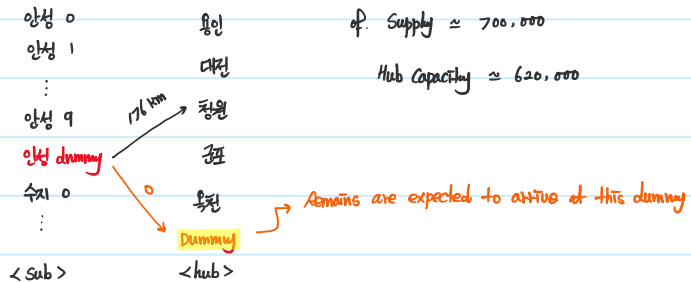 안성 0
안성 1
⋮
안성 9
안성 dummy
수지 0
⋮
<sub>
용인
대전
창원
군포
옥천
Dummy
<hub>
176 km
0
cf. Supply ≃ 700,000
Hub Capacity ≃ 620,000
Remains are expected to arrive at this dummy